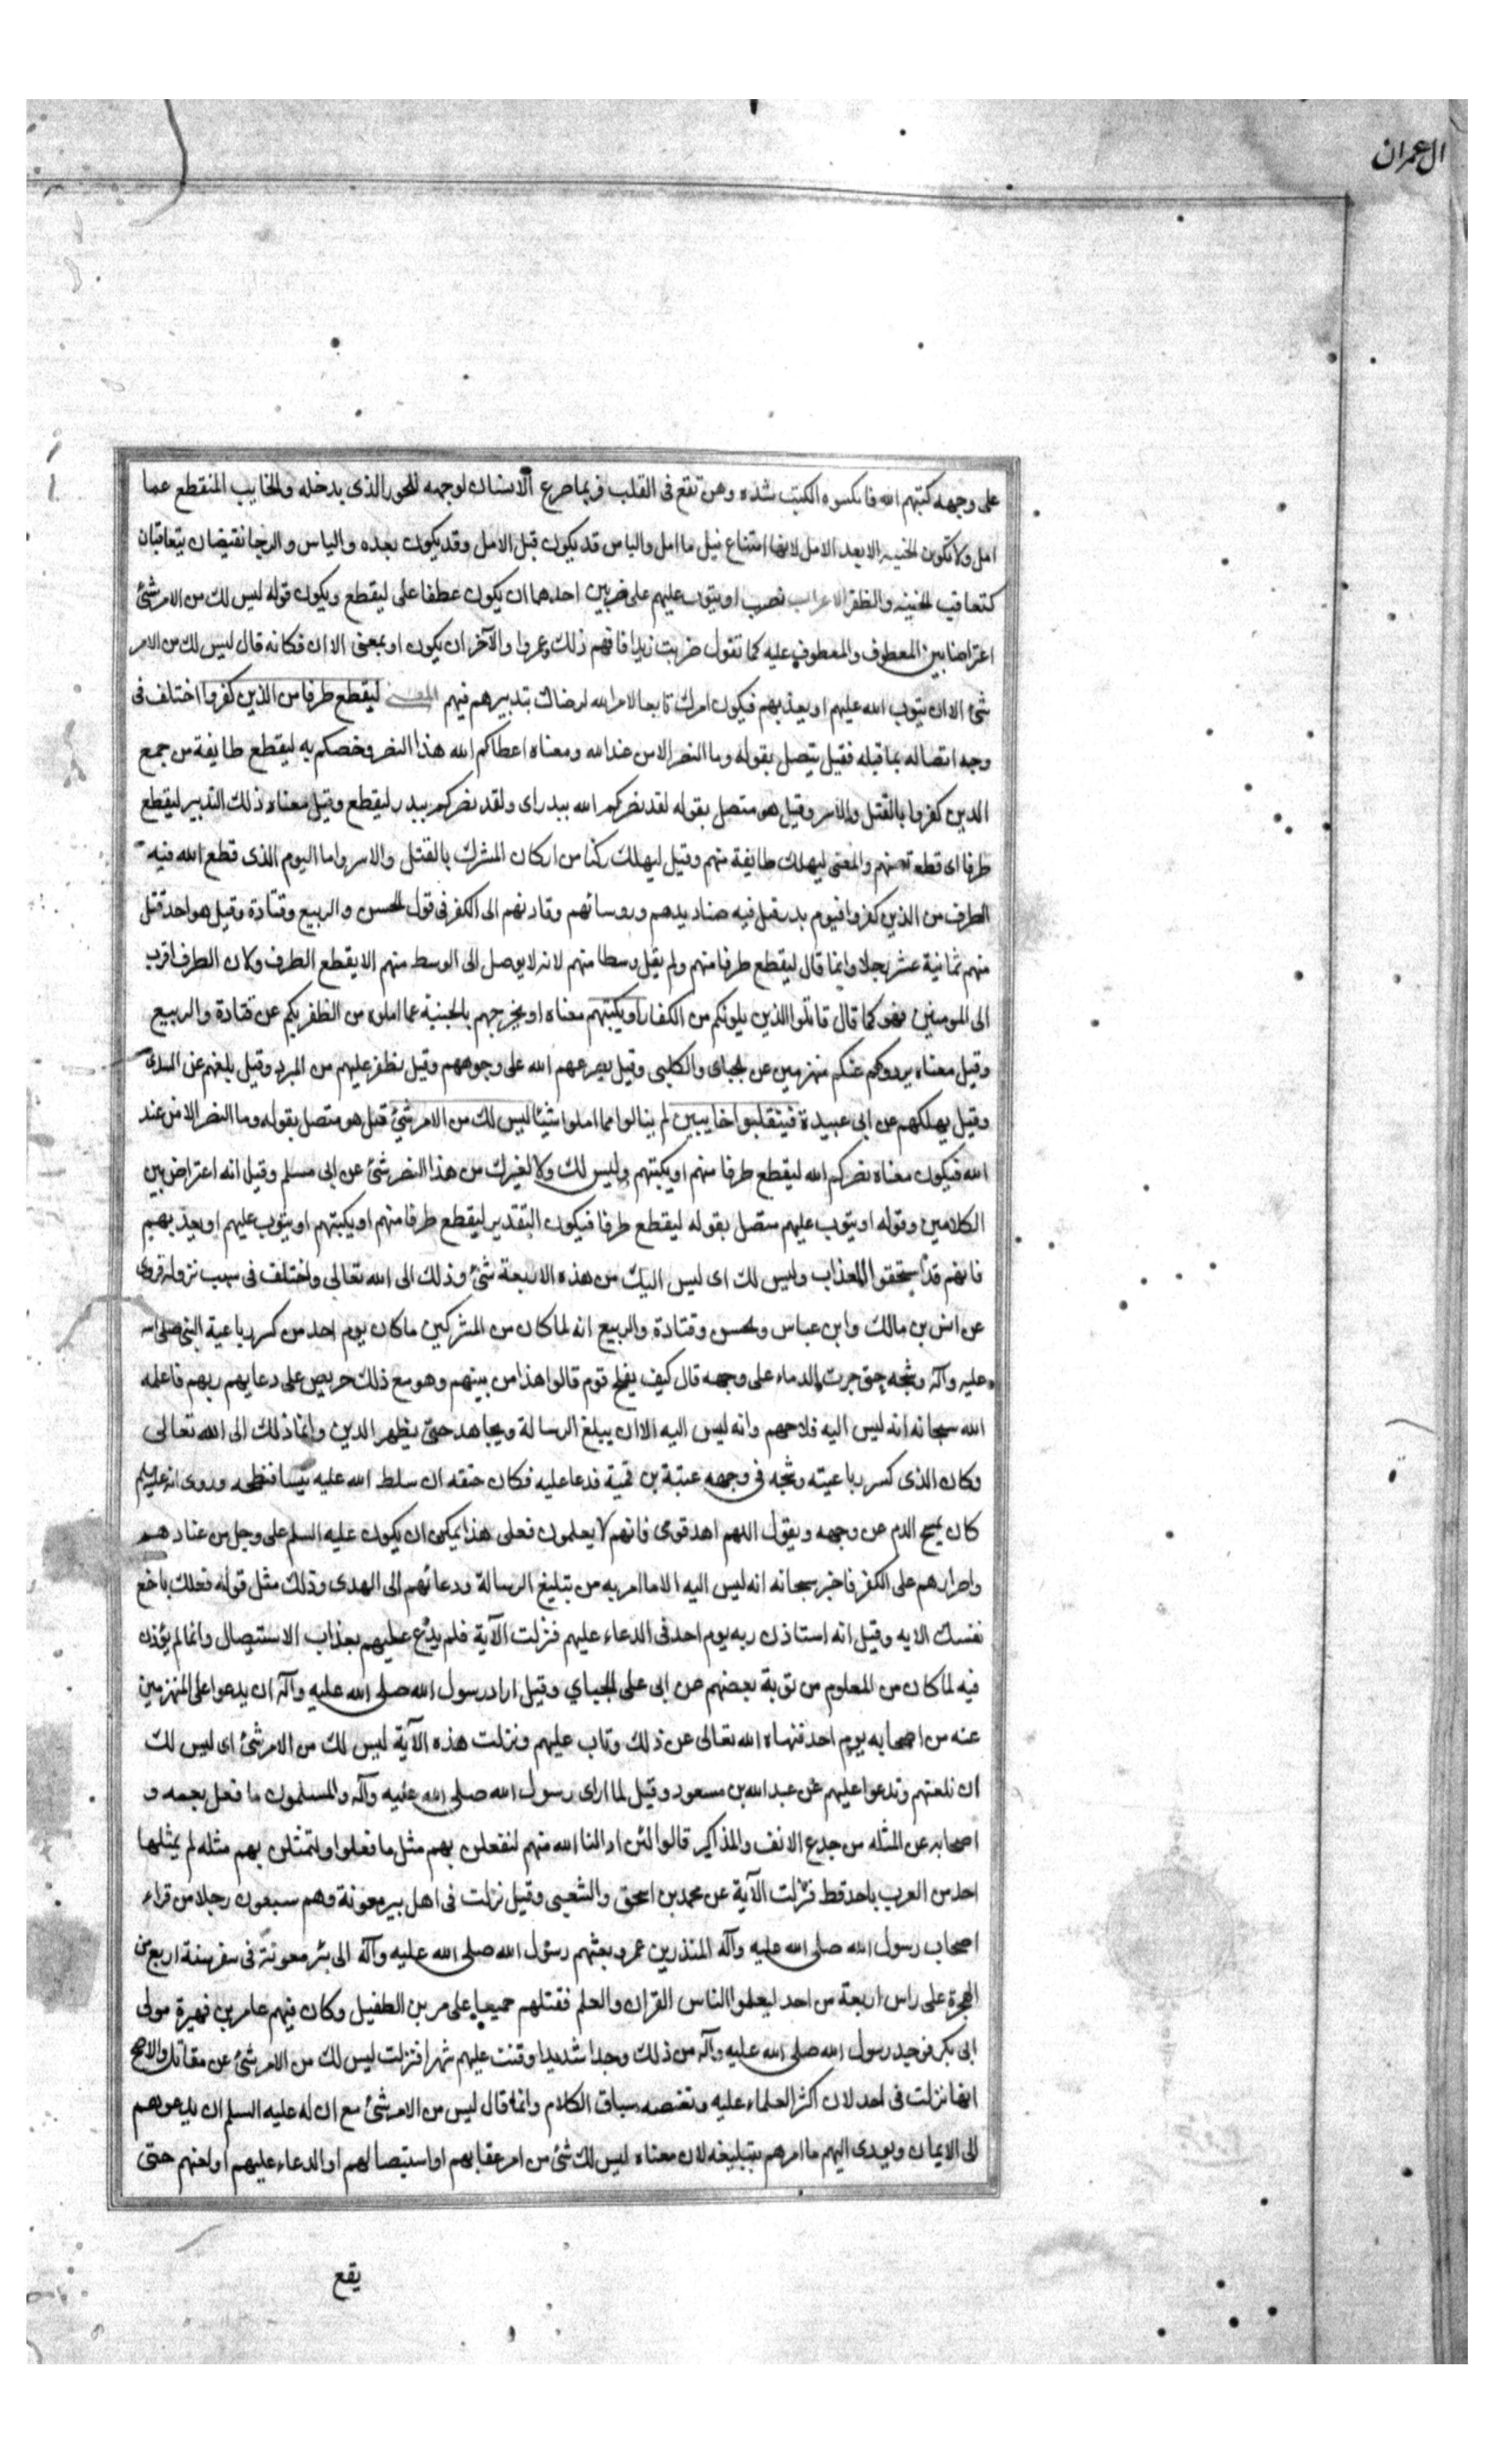 ال عمران
على وجهه كبتهم الله فانكسوه الكبت شده وهن تقع فى القلب فربما صرع الانسان لوجهه للخور الذى يدخله والخايب المنقطع عما
امل ولا تكون الخيبه الا بعد الامل لانها امتناع نيل ما امل والياس قد يكون قبل الامل وقد يكون بعده والياس والرجا نقيضان يتعاقبان
كتعاقب الخيبه والظفر الاعراب نصب او يتوب عليهم على ضربين احدهما ان يكون عطفا على ليقطع ويكون قوله ليس لك من الامر شئ
اعتراضا بين المعطوف والمعطوف عليه كما تقول ضربت زيدا فافهم ذلك وعمروا والآخر ان يكون او بمعنى الا ان فكانه قال ليس لك من الامر
شئ الا ان يتوب الله عليهم او يعذبهم فيكون امرك تابعا لامر الله لرضاك بتدبيرهم فيهم المعنى ليقطع طرفا من الذين كفروا اختلف فى
وجه اتصاله بما قبله فقيل يتصل بقوله وما النصر الا من عند الله ومعناه اعطاكم الله هذا النصر وخصكم به ليقطع طايفة من جمع
الذين كفروا بالقتل والاسر وقيل هو متصل بقوله لقد نصركم الله ببدر اى ولقد نصركم ببدر ليقطع وقيل معناه ذلك التدبير ليقطع
طرفا اى قطعة منهم والمعنى ليهلك طايفة منهم وقيل ليهلك ركنا من اركان المشرك بالقتل والاسر واما اليوم الذى قطع الله فيه
الطرف من الذين كفروا فيوم بدر قتل فيه صناديدهم وروسائهم وقادتهم الى الكفر فى قول الحسن والربيع وقتادة وقيل هو احد قتل
منهم ثمانية عشر رجلا وانما قال ليقطع طرفا منهم ولم يقل وسطا منهم لانه لا يوصل الى الوسط منهم الا بقطع الطرف ولان الطرف اقرب
الى المومنين فهو كما قال قاتلوا الذين يلونكم من الكفار او يكبتهم معناه او يخرجهم بالخيبة عما املوه من الظفر بكم عن قتادة والربيع
وقيل معناه يردوكم عنكم منهزمين عن الجباى والكلبى وقيل يصرعهم الله على وجوههم وقيل نظفر عليهم من المبرد وقيل يلعنهم عن السدى
وقيل يهلكهم عن ابى عبيدة فينقلبوا خايبين لم ينالوا مما املوا شيئا ليس لك من الامر شئ قيل هو متصل بقوله وما النصر الا من عند
الله فيكون معناه نصركم الله ليقطع طرفا منهم او يكبتهم وليس لك ولا لغيرك من هذا النصر شئ عن ابى مسلم وقيل انه اعتراض بين
الكلامين وقوله او يتوب عليهم متصل بقوله ليقطع طرفا فيكون التقدير ليقطع طرفا منهم او يكبتهم او يتوب عليهم او يعذبهم
فانهم قد استحقوا العذاب وليس لك اى ليس اليك من هذه الاربعة شئ وذلك الى الله تعالى واختلف فى سبب نزوله فروى
عن انس بن مالك وابن عباس والحسن وقتادة والربيع انه لما كان من المشركين ما كان يوم احد من كسر رباعية النبى صلى الله
عليه وآله وشجه حتى جرت الدماء على وجهه قال كيف يفلح قوم قالوا هذا من بينهم وهو مع ذلك حريص على دعايهم ربهم فاعلمه
الله سبحانه انه ليس اليه فلاحهم وانه ليس اليه الا ان يبلغ الرسالة ويجاهد حتى يظهر الدين وانما ذلك الى الله تعالى
وكان الذى كسر رباعيته وشجه فى وجهه عتبة بن قمية فدعا عليه فكان حتفه ان سلط الله عليه تيسا فنطحه وروى انه عليه السلم
كان يمسح الدم عن وجهه ويقول اللهم اهد قومى فانهم لا يعلمون فعلى هذا يمكن ان يكون عليه السلم على وجل من عنادهم
واصرارهم على الكفر فاخبر سبحانه انه ليس اليه الا ما امر به من تبليغ الرسالة ودعائهم الى الهدى وذلك مثل قوله فعلك باخع
نفسك الايه وقيل انه استاذن ربه يوم احد فى الدعاء عليهم فنزلت الآية فلم يدع عليهم بعذاب الاستيصال وانما لم يؤذن
فيه لما كان من المعلوم من توبة بعضهم عن ابى على الجباي وقيل اراد رسول الله صلى الله عليه وآله ان يدعو اعلى المنهزمين
عنه من اصحابه يوم احد فنهاه الله تعالى عن ذلك وتاب عليهم ونزلت هذه الآية ليس لك من الامر شئ اى ليس لك
ان تلعنهم وتدعوا عليهم عن عبد الله بن مسعود وقيل لما راى رسول الله صلى الله عليه وآله والمسلمون ما فعل بعمه و
اصحابه عن المثله من جدع الانف والمذاكير قالوا لئن ادالنا الله منهم لنفعلن بهم مثل ما فعلوا ولتمثلن بهم مثله لم يمثلها
احد من العرب باحد قط فنزلت الآية عن محمد بن اسحق والشعبى وقيل نزلت فى اهل بير معونة وهم سبعون رجلا من قراء
اصحاب رسول الله صلى الله عليه وآله المنذر بن عمرو بعثهم رسول الله صلى الله عليه وآله الى بئر معونة فى سفر سنة اربع من
الهجرة على راس اربعة من احد ليعلموا الناس القران والعلم فقتلهم جميعا على مر بن الطفيل وكان فيهم عامر بن فهيرة مولى
ابى بكر فوجد رسول الله صلى الله عليه وآله من ذلك وجدا شديدا وقنت عليهم شهرا فنزلت ليس لك من الامر شئ عن مقاتل والاصح
انها نزلت فى احد لان اكثر العلماء عليه ونقتضه سياق الكلام وانما قال ليس من الامر شئ مع ان له عليه السلم ان يدعوهم
الى الايمان ويودى اليهم ما امرهم بتبليغه لان معناه ليس لك شئ من امر عقابهم او استيصالهم او الدعاء عليهم او لعنهم حتى
يقع